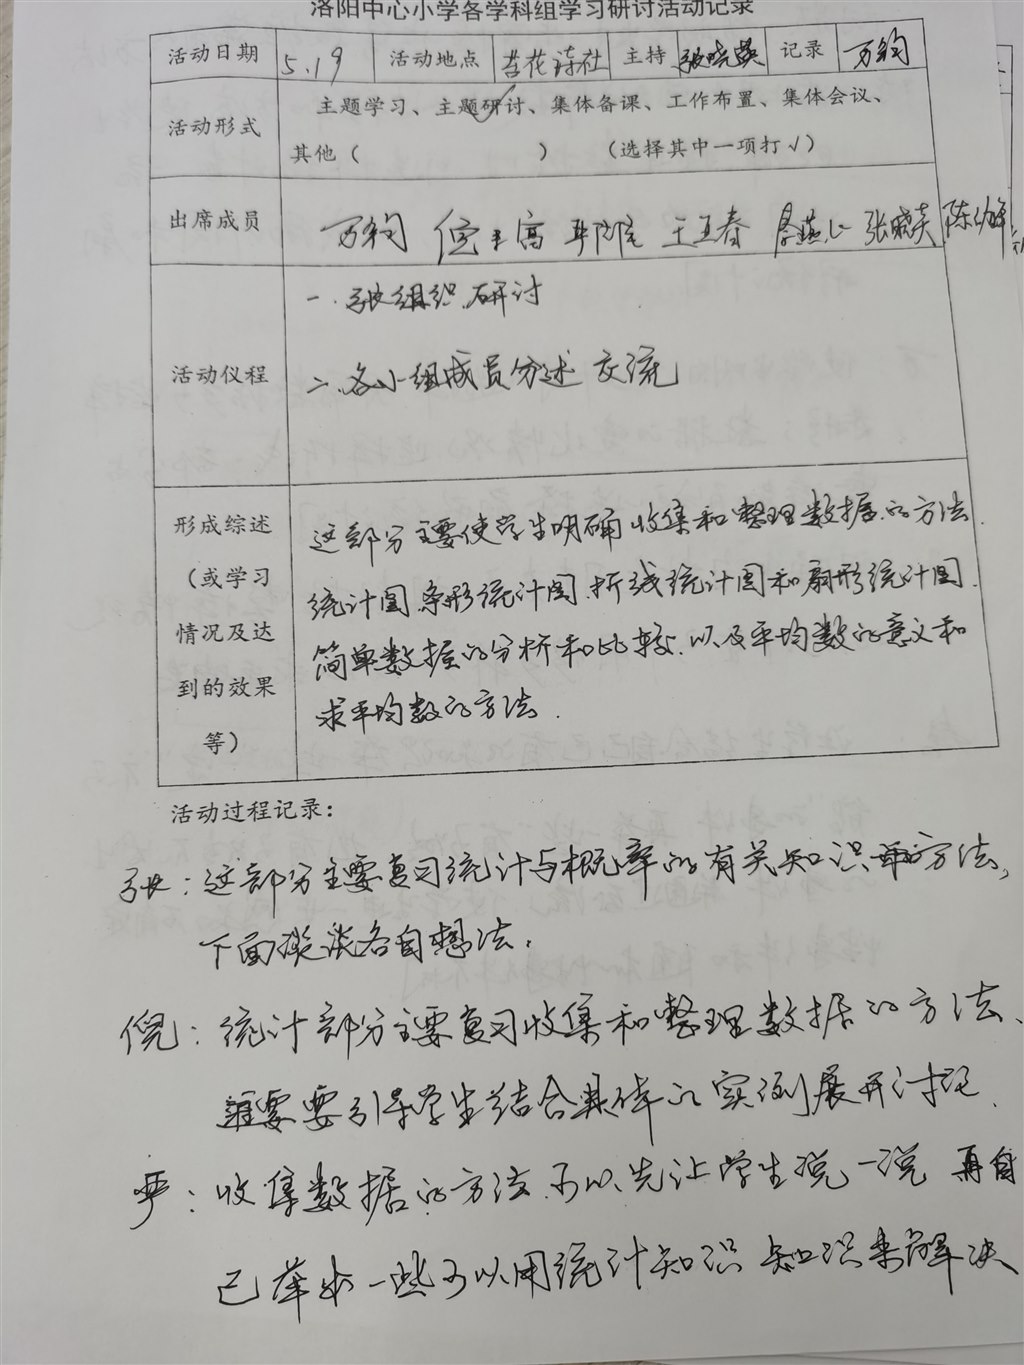 洛阳中心小学各学科组学习研讨活动记录
活动日期 5.19 活动地点 杏花诗社 主持 张晓英 记录 万钧
活动形式 主题学习、主题研讨、集体备课、工作布置、集体会议、
其他（ ） （选择其中一项打√）
出席成员 万钧 王玉春 张晓英
活动仪程
一. 张组织研讨
二. 各小组成员分述 交流
形成综述
（或学习
情况及达
到的效果
等）
这部分主要使学生明确收集和整理数据的方法.
统计图、条形统计图、折线统计图和扇形统计图.
简单数据的分析和比较.以及平均数的意义和
求平均数的方法.
活动过程记录：
张：这部分主要复习统计与概率的有关知识和方法,
下面谈谈各自想法.
倪：统计部分主要复习收集和整理数据的方法、
要引导学生结合具体的实例展开讨论.
严：收集数据的方法.可以先让学生说一说 再自
己举出一些可以用统计知识 知识来解决